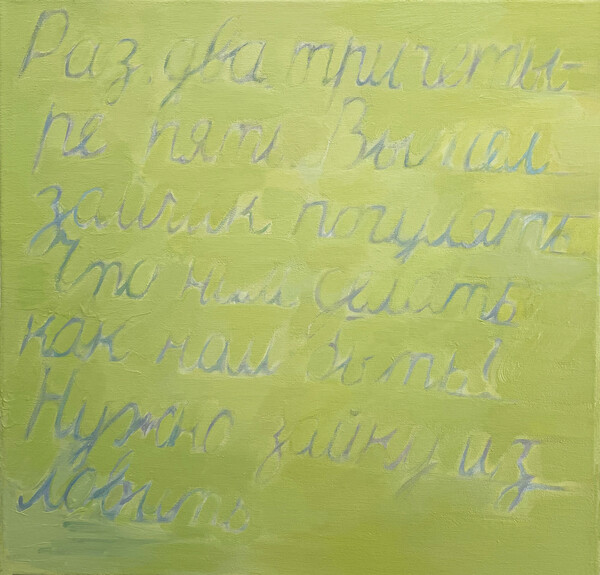 Раз два три четы-
ре пять Вышел
зайчик погулять
Что нам делать
как нам быть?
Нужно зайку из
ловить